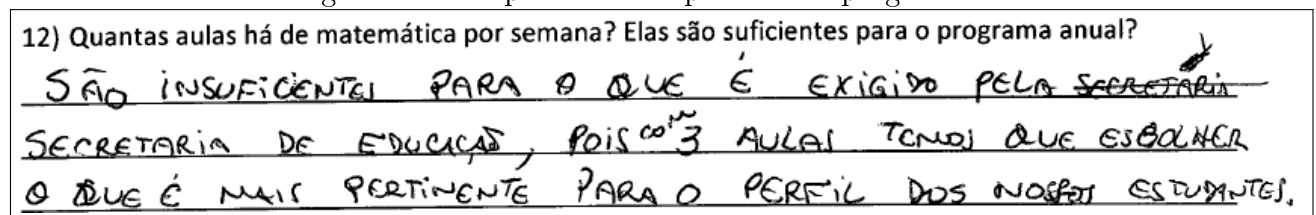 12) Quantas aulas há de matemática por semana? Elas são suficientes para o programa anual?
SÃO INSUFICIENTES PARA O QUE É EXIGIDO PELA SECRETARIA
SECRETARIA DE EDUCAÇÃO, POIS COM 3 AULAS TEMOS QUE ESCOLHER
O QUE É MAIS PERTINENTE PARA O PERFIL DOS NOSSOS ESTUDANTES.